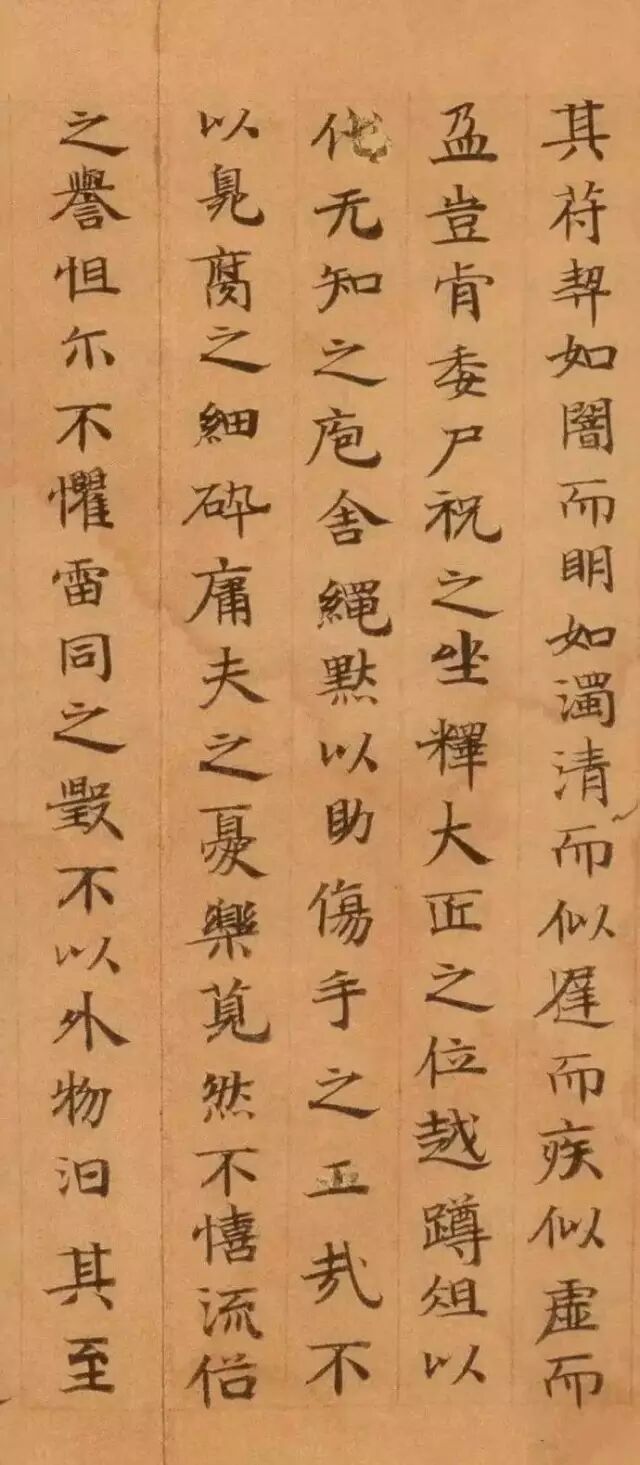 其苻契如闇而明如濁清而似遅而疾似虛而
盈豈肯委尸祝之坐釋大匠之位越蹲俎以
代无知之庖舍繩黙以助傷手之工㢤不
以臰腐之細碎庸夫之憂樂莧然不憘流俗
之譽怛尓不懼雷同之毀不以外物汩其至